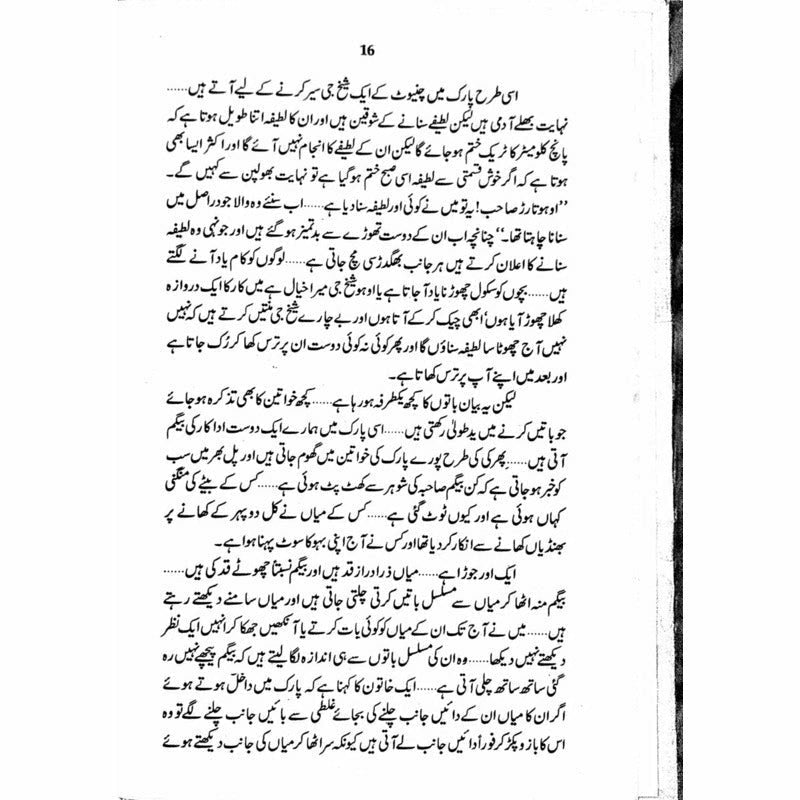 16
اسی طرح پارک میں چنیوٹ کے ایک شیخ جی سیر کرنے کے لیے آتے ہیں......
نہایت بھلے آدمی ہیں لیکن لطیفے سنانے کے شوقین ہیں اور ان کا لطیفہ اتنا طویل ہوتا ہے کہ
پانچ کلومیٹر کا ٹریک ختم ہو جائے گا لیکن ان کے لطیفے کا انجام نہیں آئے گا اور اکثر ایسا بھی
ہوتا ہے کہ اگر خوش قسمتی سے لطیفہ اسی صبح ختم ہو گیا ہے تو نہایت بھولپن سے کہیں گے۔
”اوہو تارڑ صاحب! یہ تو میں نے کوئی اور لطیفہ سنا دیا ہے......اب سنئے وہ والا جو دراصل میں
سنانا چاہتا تھا۔“ چنانچہ اب ان کے دوست تھوڑے سے بدتمیز ہو گئے ہیں اور جونہی وہ لطیفہ
سنانے کا اعلان کرتے ہیں ہر جانب بھگدڑ سی مچ جاتی ہے......لوگوں کو کام یاد آنے لگتے
ہیں......بچوں کو سکول چھوڑنا یاد آ جاتا ہے یا اوہو شیخ جی میرا خیال ہے میں کار کا ایک دروازہ
کھلا چھوڑ آیا ہوں‘ ابھی چیک کر کے آتا ہوں اور بے چارے شیخ جی منتیں کرتے ہیں کہ نہیں
نہیں آج چھوٹا سا لطیفہ سناؤں گا اور پھر کوئی نہ کوئی دوست ان پر ترس کھا کر رُک جاتا ہے
اور بعد میں اپنے آپ پر ترس کھاتا ہے۔
لیکن یہ بیان باتوں کا کچھ یکطرفہ ہو رہا ہے......کچھ خواتین کا بھی تذکرہ ہو جائے
جو باتیں کرنے میں یدطولیٰ رکھتی ہیں......اسی پارک میں ہمارے ایک دوست اداکار کی بیگم
آتی ہیں......پھرکی کی طرح پورے پارک کی خواتین میں گھوم جاتی ہیں اور پل بھر میں سب
کو خبر ہو جاتی ہے کہ کن بیگم صاحبہ کی شوہر سے کھٹ پٹ ہوئی ہے......کس کے بیٹے کی منگنی
کہاں ہوئی ہے اور کیوں ٹوٹ گئی ہے......کس کے میاں نے کل دوپہر کے کھانے پر
بھنڈیاں کھانے سے انکار کر دیا تھا اور کس نے آج اپنی بہو کا سوٹ پہنا ہوا ہے۔
ایک اور جوڑا ہے......میاں ذرا دراز قد ہیں اور بیگم نسبتاً چھوٹے قد کی ہیں......
بیگم منہ اٹھا کر میاں سے مسلسل باتیں کرتی چلتی جاتی ہیں اور میاں سامنے دیکھتے رہتے
ہیں......میں نے آج تک ان کے میاں کو کوئی بات کرتے یا آنکھیں جھکا کر انہیں ایک نظر
دیکھتے نہیں دیکھا......وہ ان کی مسلسل باتوں سے ہی اندازہ لگا لیتے ہیں کہ بیگم پیچھے نہیں رہ
گئی ساتھ ساتھ چلی آتی ہے......ایک خاتون کا کہنا ہے کہ پارک میں داخل ہوتے ہوئے
اگر ان کا میاں ان کے دائیں جانب چلنے کی بجائے غلطی سے بائیں جانب چلنے لگے تو وہ
اس کا بازو پکڑ کر فوراً دائیں جانب لے آتی ہیں کیونکہ سر اٹھا کر میاں کی جانب دیکھتے ہوئے